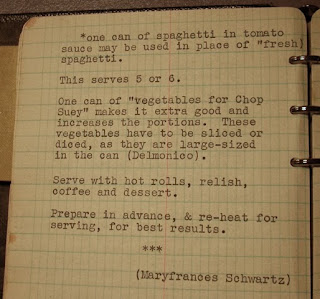 *one can of spaghetti in tomato
sauce may be used in place of "fresh)
spaghetti.
This serves 5 or 6.
One can of "vegetables for Chop
Suey" makes it extra good and
increases the portions.  These
vegetables have to be sliced or
diced, as they are large-sized
in the can (Delmonico).
Serve with hot rolls, relish,
coffee and dessert.
Prepare in advance, & re-heat for
serving, for best results.
***
(Maryfrances Schwartz)